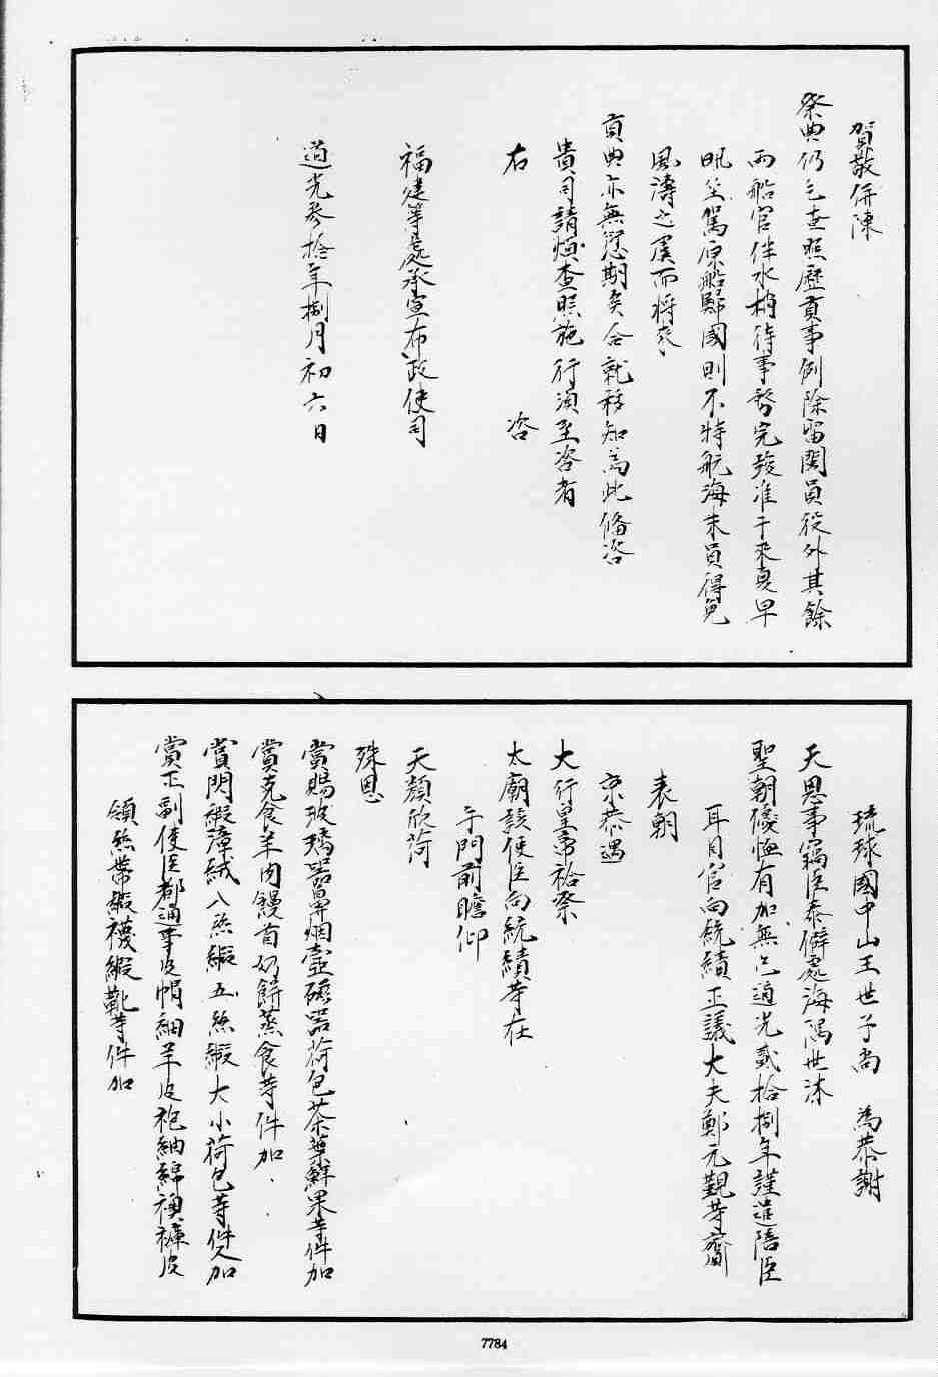 賀敬併陳
祭典仍乞查照歷貢事例除留閩員役外其餘
兩船官伴水梢待事務完竣准于來夏早
汛坐駕原船歸國則不特航海末員得免
風濤之虞而將來
貢典亦無愆期矣合就移知為此備咨
貴司請煩查照施行須至咨者
右 咨
福建等處承宣布政使司
道光叁拾年捌月初六日
琉球國中山王世子尚 為恭謝
天恩事竊臣泰僻處海隅世沐
聖朝優恤有加無已道光貳拾捌年謹遣陪臣
耳目官向統績正議大夫鄭元覲等齎
表朝
京恭遇
大行皇帝祫祭
太廟該使臣向統績等在
午門前瞻仰
天顏欣荷
殊恩
賞賜玻璃器鼻烟壺磁器荷包茶葉鮮果等件加
賞克食羊肉饅首奶餅蒸食等件加
賞閃緞漳絨八絲緞五絲緞大小荷包等件加
賞正副使臣都通事皮帽紬羊皮袍紬綿襖褲皮
領絲帶緞襪緞靴等件加
7784